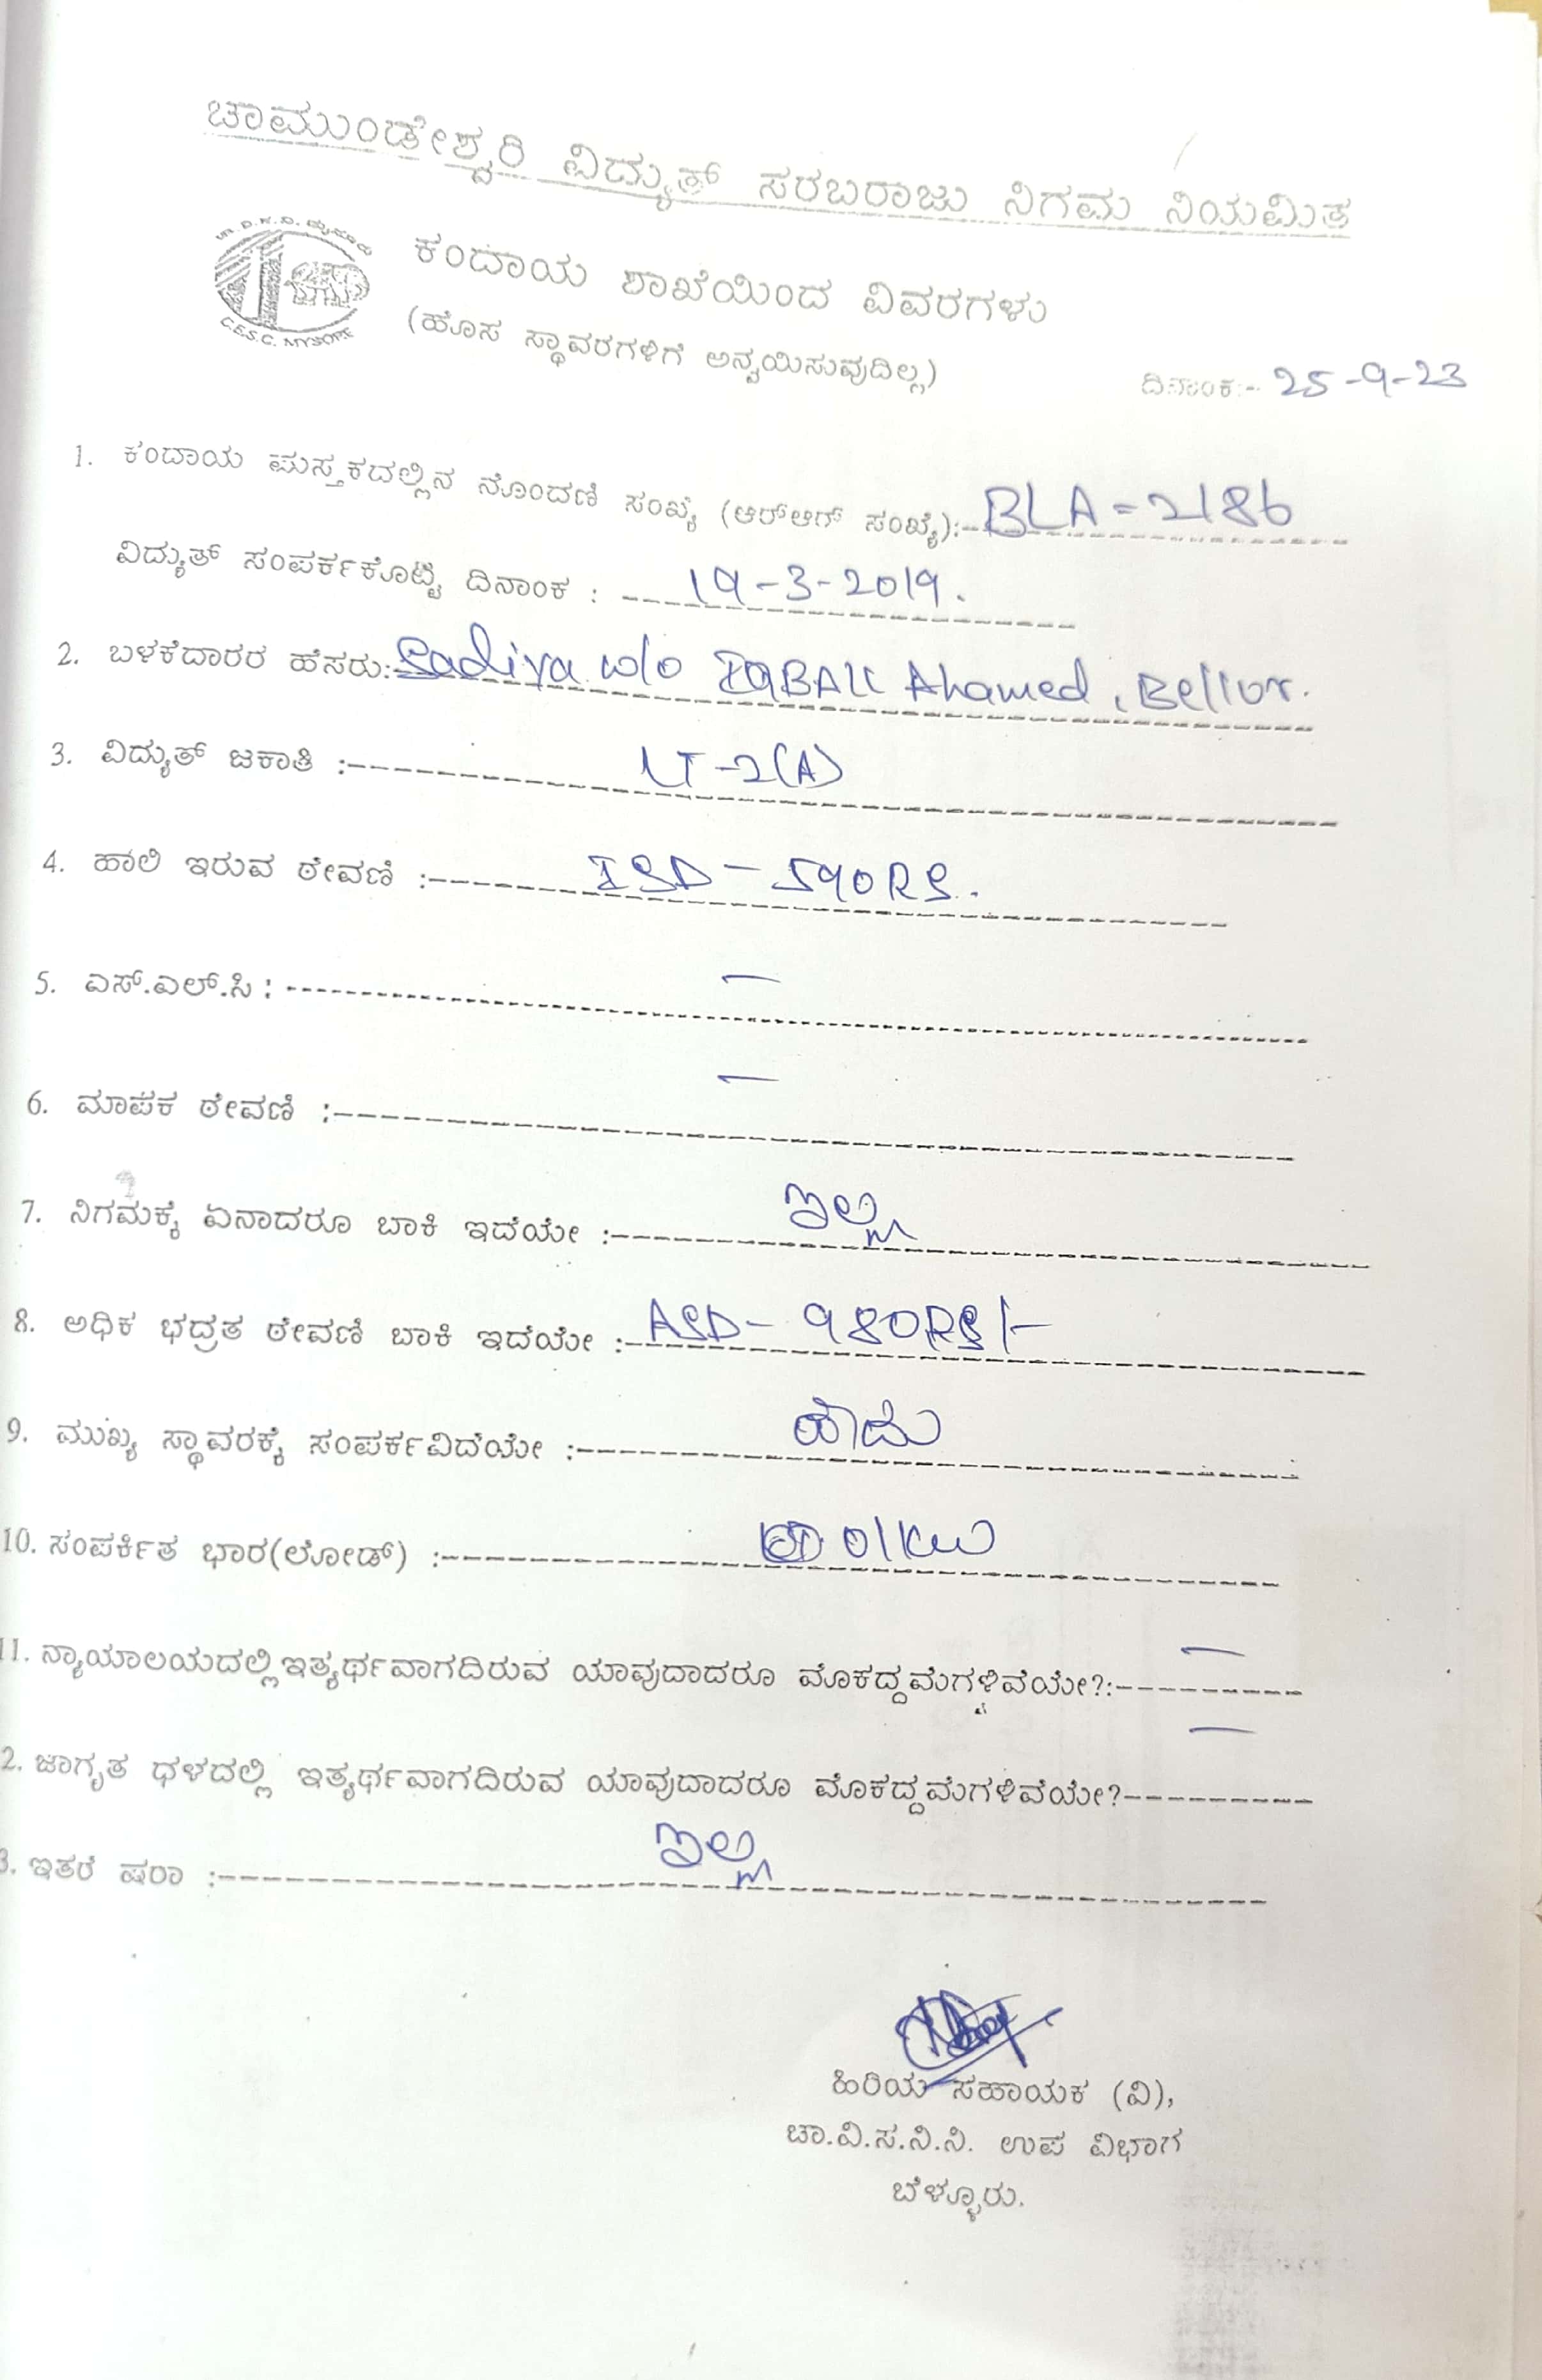 ಚಾಮುಂಡೇಶ್ವರಿ ವಿದ್ಯುತ್ ಸರಬರಾಜು ನಿಗಮ ನಿಯಮಿತ
ಕಂದಾಯ ಶಾಖೆಯಿಂದ ವಿವರಗಳು
C.E.S.C. MYSORE
(ಹೊಸ ಸ್ಥಾವರಗಳಿಗೆ ಅನ್ವಯಿಸುವುದಿಲ್ಲ)
ದಿನಾಂಕ:- 25-9-23
1. ಕಂದಾಯ ಪುಸ್ತಕದಲ್ಲಿನ ನೊಂದಣಿ ಸಂಖ್ಯೆ (ಆರ್ಆರ್ ಸಂಖ್ಯೆ):- BLA-2186
ವಿದ್ಯುತ್ ಸಂಪರ್ಕಕೊಟ್ಟ ದಿನಾಂಕ : 19-3-2019.
2. ಬಳಕೆದಾರರ ಹೆಸರು: Sadiya w/o IQBAL Ahamed, Bellur.
3. ವಿದ್ಯುತ್ ಜಕಾತಿ :- LT-2(A)
4. ಹಾಲಿ ಇರುವ ಠೇವಣಿ :- ISD - 590RS.
5. ಎಸ್.ಎಲ್.ಸಿ : —
6. ಮಾಪಕ ಠೇವಣಿ :- —
7. ನಿಗಮಕ್ಕೆ ಏನಾದರೂ ಬಾಕಿ ಇದೆಯೇ :- ಇಲ್ಲ
8. ಅಧಿಕ ಭದ್ರತ ಠೇವಣಿ ಬಾಕಿ ಇದೆಯೇ :- ASD- 980RS/-
9. ಮುಖ್ಯ ಸ್ಥಾವರಕ್ಕೆ ಸಂಪರ್ಕವಿದೆಯೇ :- ಹೌದು
10. ಸಂಪರ್ಕಿತ ಭಾರ(ಲೋಡ್) :- 01KW
11. ನ್ಯಾಯಾಲಯದಲ್ಲಿ ಇತ್ಯರ್ಥವಾಗದಿರುವ ಯಾವುದಾದರೂ ಮೊಕದ್ದಮೆಗಳಿವೆಯೇ?:- —
2. ಜಾಗೃತ ಧಳದಲ್ಲಿ ಇತ್ಯರ್ಥವಾಗದಿರುವ ಯಾವುದಾದರೂ ಮೊಕದ್ದಮೆಗಳಿವೆಯೇ?- —
3. ಇತರೆ ಷರಾ :- ಇಲ್ಲ
ಹಿರಿಯ ಸಹಾಯಕ (ವಿ),
ಚಾ.ವಿ.ಸ.ನಿ.ನಿ. ಉಪ ವಿಭಾಗ
ಬೆಳ್ಳೂರು.